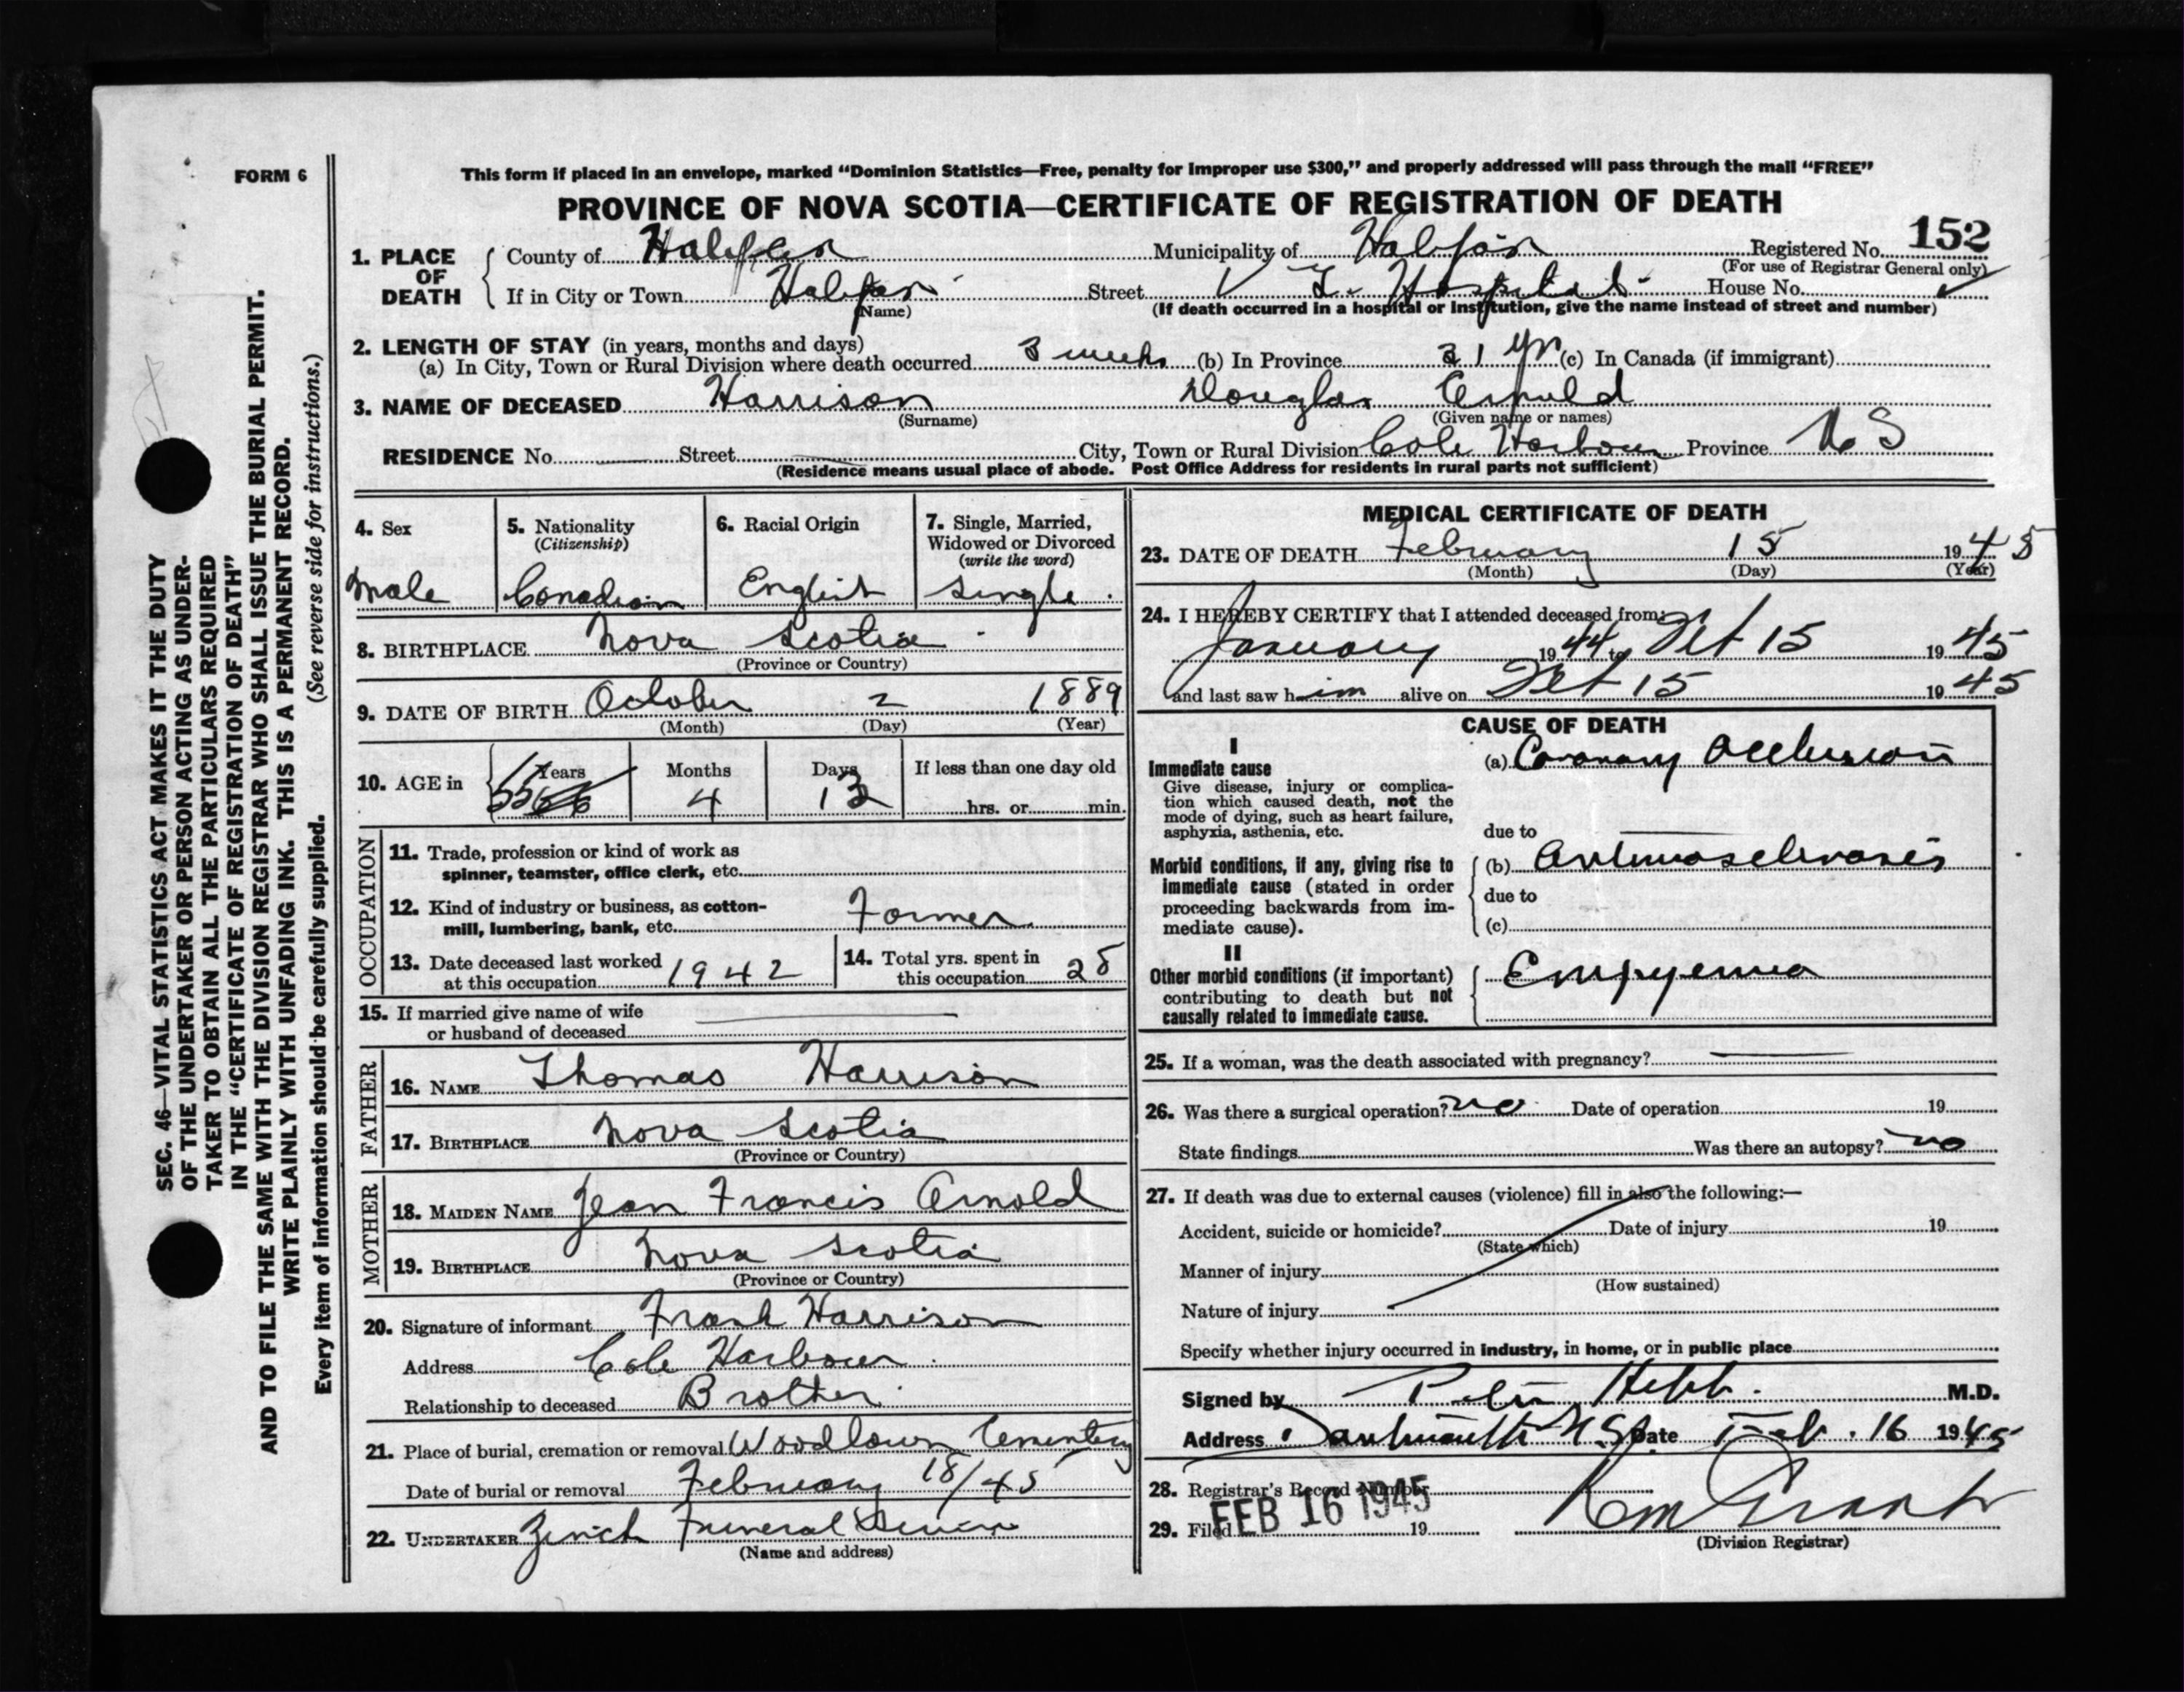 FORM 6
This form if placed in an envelope, marked "Dominion Statistics—Free, penalty for improper use $300," and properly addressed will pass through the mail "FREE"
PROVINCE OF NOVA SCOTIA—CERTIFICATE OF REGISTRATION OF DEATH
152
1. PLACE OF DEATH County of Halifax Municipality of Halifax Registered No.
(For use of Registrar General only)
If in City or Town Halifax Street V G. Hospital House No.
(Name) (If death occurred in a hospital or institution, give the name instead of street and number)
2. LENGTH OF STAY (in years, months and days)
(a) In City, Town or Rural Division where death occurred 3 weeks (b) In Province yrs (c) In Canada (if immigrant)
3. NAME OF DECEASED Harrison Douglas Arnold
(Surname) (Given name or names)
RESIDENCE No. Street City, Town or Rural Division Cole Harbour Province N S
(Residence means usual place of abode. Post Office Address for residents in rural parts not sufficient)
4. Sex
Male
5. Nationality
(Citizenship)
Canadian
6. Racial Origin
English
7. Single, Married,
Widowed or Divorced
(write the word)
single.
8. BIRTHPLACE Nova Scotia
(Province or Country)
9. DATE OF BIRTH October 2 1889
(Month) (Day) (Year)
10. AGE in Years Months Days If less than one day old
55 4 13 hrs. or min.
OCCUPATION
11. Trade, profession or kind of work as
spinner, teamster, office clerk, etc.
12. Kind of industry or business, as cotton-
mill, lumbering, bank, etc. Farmer
13. Date deceased last worked
at this occupation 1942
14. Total yrs. spent in
this occupation 28
15. If married give name of wife
or husband of deceased
FATHER
16. NAME Thomas Harrison
17. BIRTHPLACE Nova Scotia
(Province or Country)
MOTHER
18. MAIDEN NAME Jean Francis Arnold
19. BIRTHPLACE Nova Scotia
(Province or Country)
20. Signature of informant Frank Harrison
Address Cole Harbour
Relationship to deceased Brother
21. Place of burial, cremation or removal Woodlawn Cementery
Date of burial or removal February 18/45
22. UNDERTAKER Zinck Funeral Service
(Name and address)
MEDICAL CERTIFICATE OF DEATH
23. DATE OF DEATH February 15 1945
(Month) (Day) (Year)
24. I HEREBY CERTIFY that I attended deceased from:
January 1944 to Feb 15 1945
and last saw him alive on Feb 15 1945
CAUSE OF DEATH
I
Immediate cause
Give disease, injury or complica-
tion which caused death, not the
mode of dying, such as heart failure,
asphyxia, asthenia, etc.
(a) Coronary Occlusion
due to
Morbid conditions, if any, giving rise to
immediate cause (stated in order
proceeding backwards from im-
mediate cause).
(b) Arteriosclerosis
due to
(c)
II
Other morbid conditions (if important)
contributing to death but not
causally related to immediate cause.
Empyema
25. If a woman, was the death associated with pregnancy?
26. Was there a surgical operation? no Date of operation 19
State findings Was there an autopsy? no
27. If death was due to external causes (violence) fill in also the following:—
Accident, suicide or homicide? Date of injury 19
(State which)
Manner of injury
(How sustained)
Nature of injury
Specify whether injury occurred in industry, in home, or in public place
Signed by Hebb. M.D.
Address Dartmouth N S Date Feb. 16 1945
28. Registrar's Record Number
29. Filed FEB 16 1945 19
(Division Registrar)
SEC. 46—VITAL STATISTICS ACT MAKES IT THE DUTY
OF THE UNDERTAKER OR PERSON ACTING AS UNDER-
TAKER TO OBTAIN ALL THE PARTICULARS REQUIRED
IN THE "CERTIFICATE OF REGISTRATION OF DEATH"
AND TO FILE THE SAME WITH THE DIVISION REGISTRAR WHO SHALL ISSUE THE BURIAL PERMIT.
WRITE PLAINLY WITH UNFADING INK. THIS IS A PERMANENT RECORD.
Every item of information should be carefully supplied. (See reverse side for instructions.)